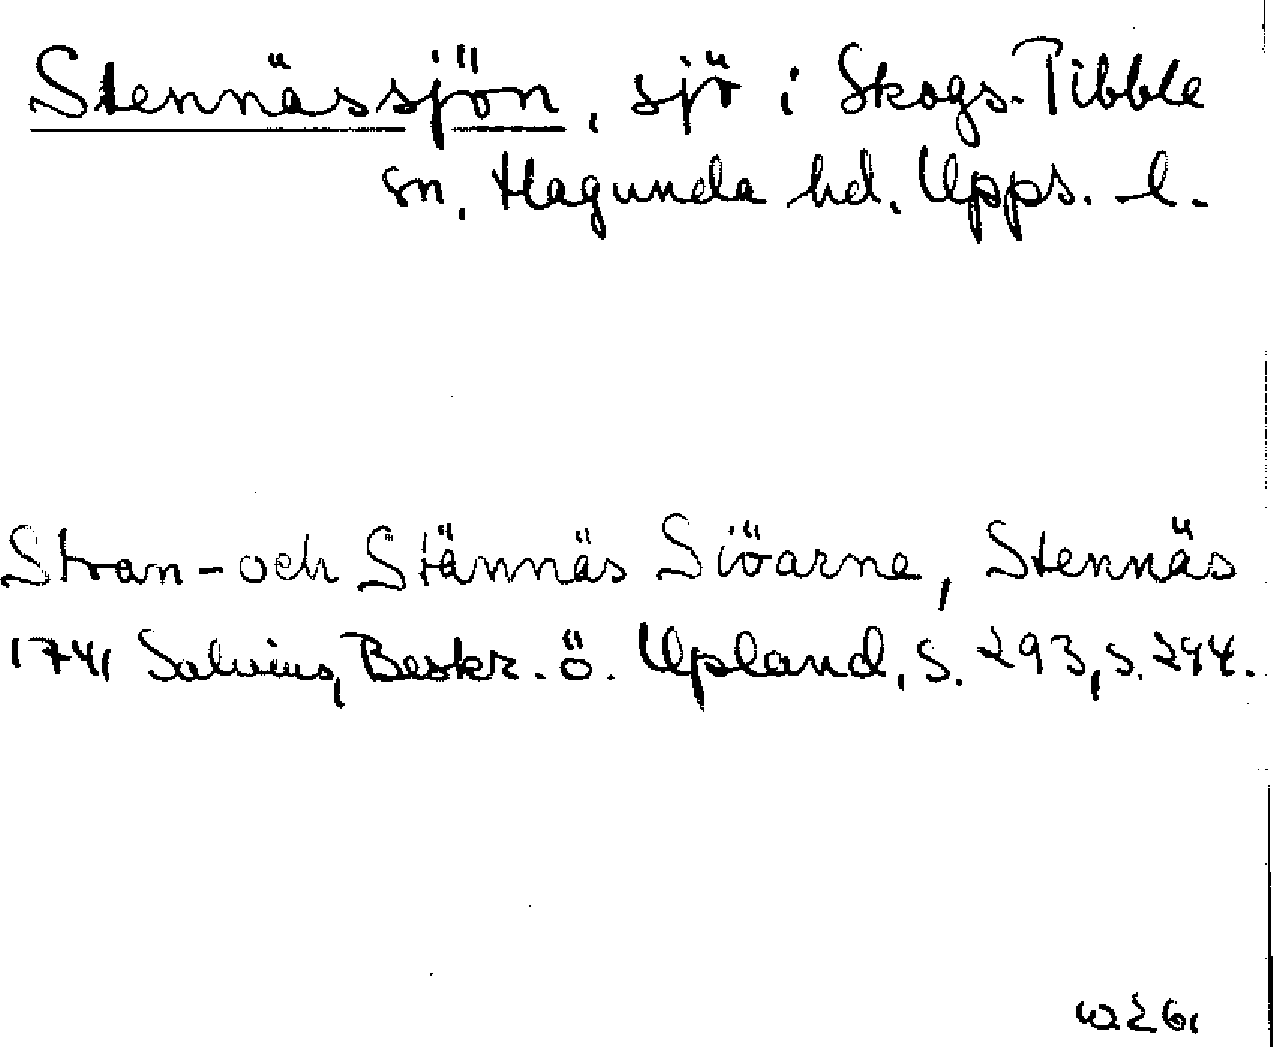 Stennässjön, sjö i Skogs-Tibble
sn, Hagunda hd. Upps. l.
Stran- och Stännäs Siöarne, Stennäs
1741 Salvius, Beskr. ö. Upland, s. 293, s. 294.